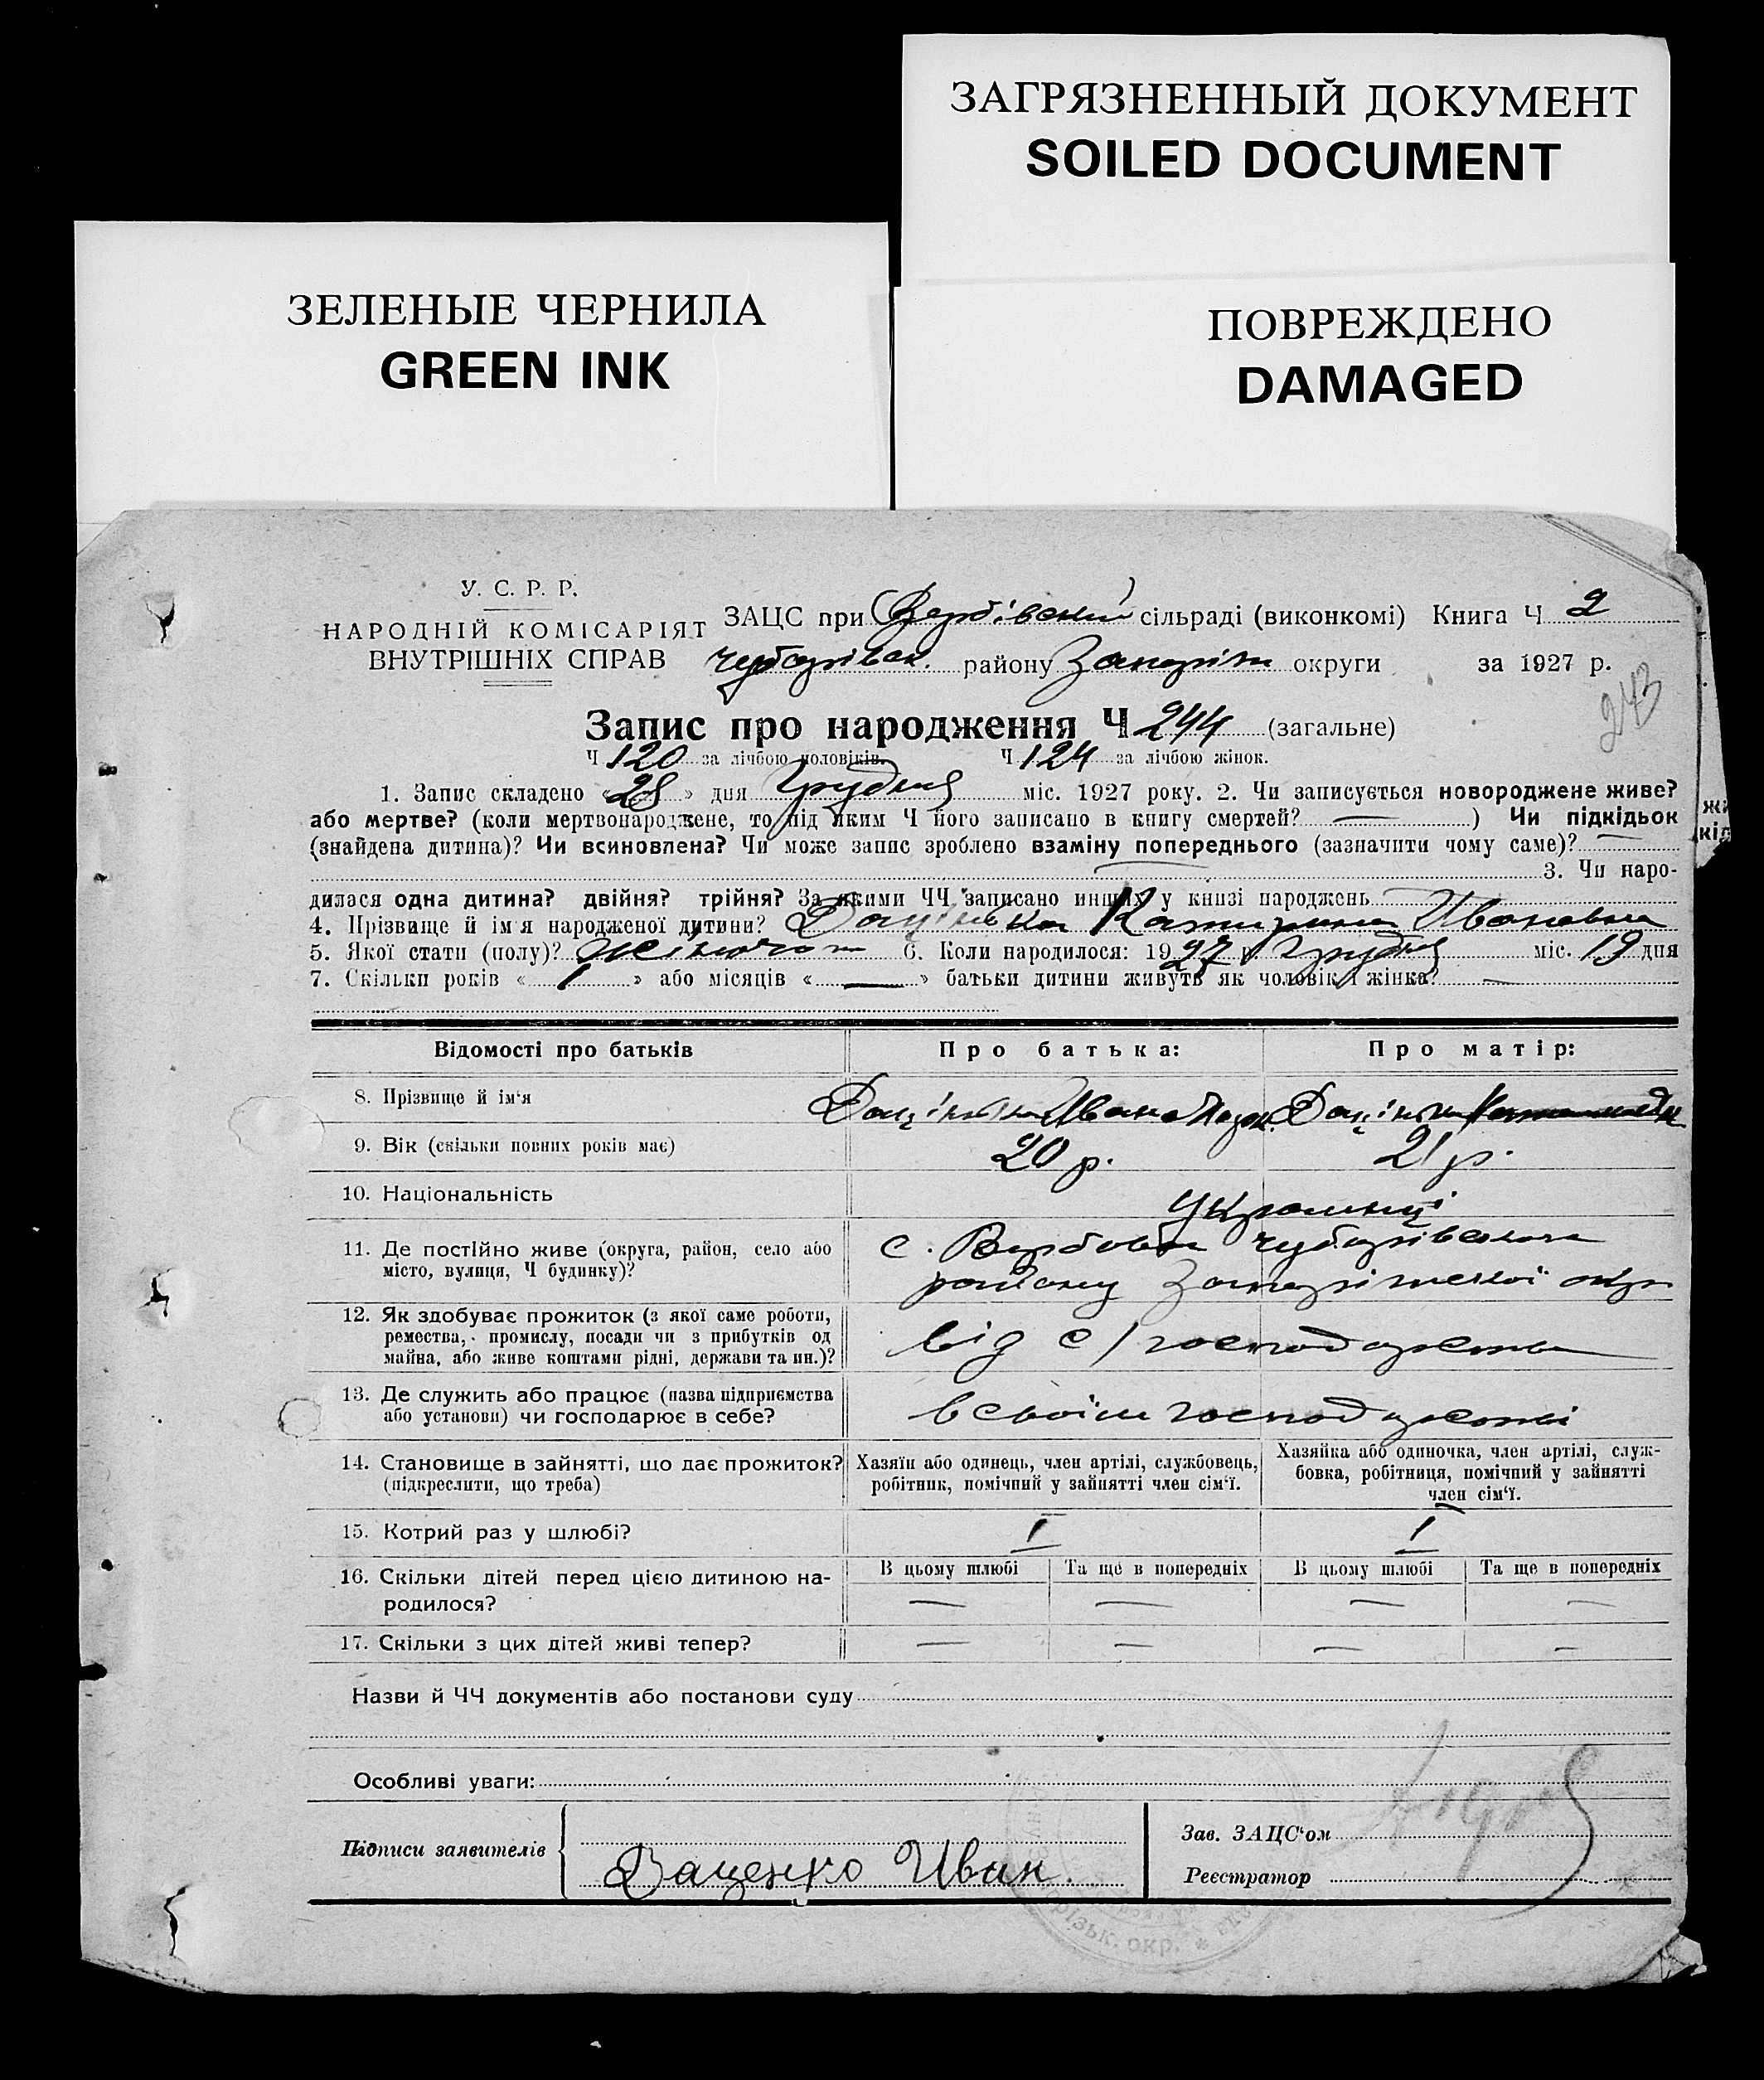 ЗАГРЯЗНЕННЫЙ ДОКУМЕНТ
SOILED DOCUMENT
ЗЕЛЕНЫЕ ЧЕРНИЛА
GREEN INK
ПОВРЕЖДЕНО
DAMAGED
У. С. Р. Р.
НАРОДНІЙ КОМІСАРІЯТ
ВНУТРІШНІХ СПРАВ
ЗАЦС при Вербівській сільраді (виконкомі) Книга Ч 2
Чубарівськ. району Запоріж округи за 1927 р.
243
Запис про народження Ч 244 (загальне)
Ч 120 за лічбою чоловіків. Ч 124 за лічбою жінок.
1. Запис складено « 28 » дня Грудня міс. 1927 року. 2. Чи записується новороджене живе?
або мертве? (коли мертвонароджене, то під яким Ч його записано в книгу смертей? — ) Чи підкідьок
(знайдена дитина)? Чи всиновлена? Чи може запис зроблено взаміну попереднього (зазначити чому саме)? —
3. Чи наро-
дилася одна дитина? двійня? трійня? За якими ЧЧ записано инших у книзі народжень
4. Прізвище й ім'я народженої дитини? Катерина Ивановна
5. Якої стати (полу)? жіночого 6. Коли народилося: 1927 р. Грудня міс. 19 дня
7. Скільки років « 1 » або місяців « — » батьки дитини живуть як чоловік і жінка? —
Відомості про батьків Про батька: Про матір:
8. Прізвище й ім'я Иван
9. Вік (скільки повних років має) 20 р. 21 р.
10. Національність Українці
11. Де постійно живе (округа, район, село або с. Вербова Чубарівського
місто, вулиця, Ч будинку)? району Запоріжської окр
12. Як здобуває прожиток (з якої саме роботи,
ремества, промислу, посади чи з прибутків од від с/господарства
майна, або живе коштами рідні, держави та ин.)?
13. Де служить або працює (назва підприємства
або установи) чи господарює в себе? в своїм господарстві
14. Становище в зайнятті, що дає прожиток? Хазяїн або одинець, член артілі, службовець, Хазяйка або одиночка, член артілі, служ-
(підкреслити, що треба) робітник, помічний у зайнятті член сім'ї. бовка, робітниця, помічний у зайнятті
член сім'ї.
15. Котрий раз у шлюбі? I I
16. Скільки дітей перед цією дитиною на- В цьому шлюбі Та ще в попередніх В цьому шлюбі Та ще в попередніх
родилося? — — — —
17. Скільки з цих дітей живі тепер? — — — —
Назви й ЧЧ документів або постанови суду
Особливі уваги:
Підписи заявителів Зав. ЗАЦС'ом
Даценко Иван. Реєстратор
різьк. окр. *